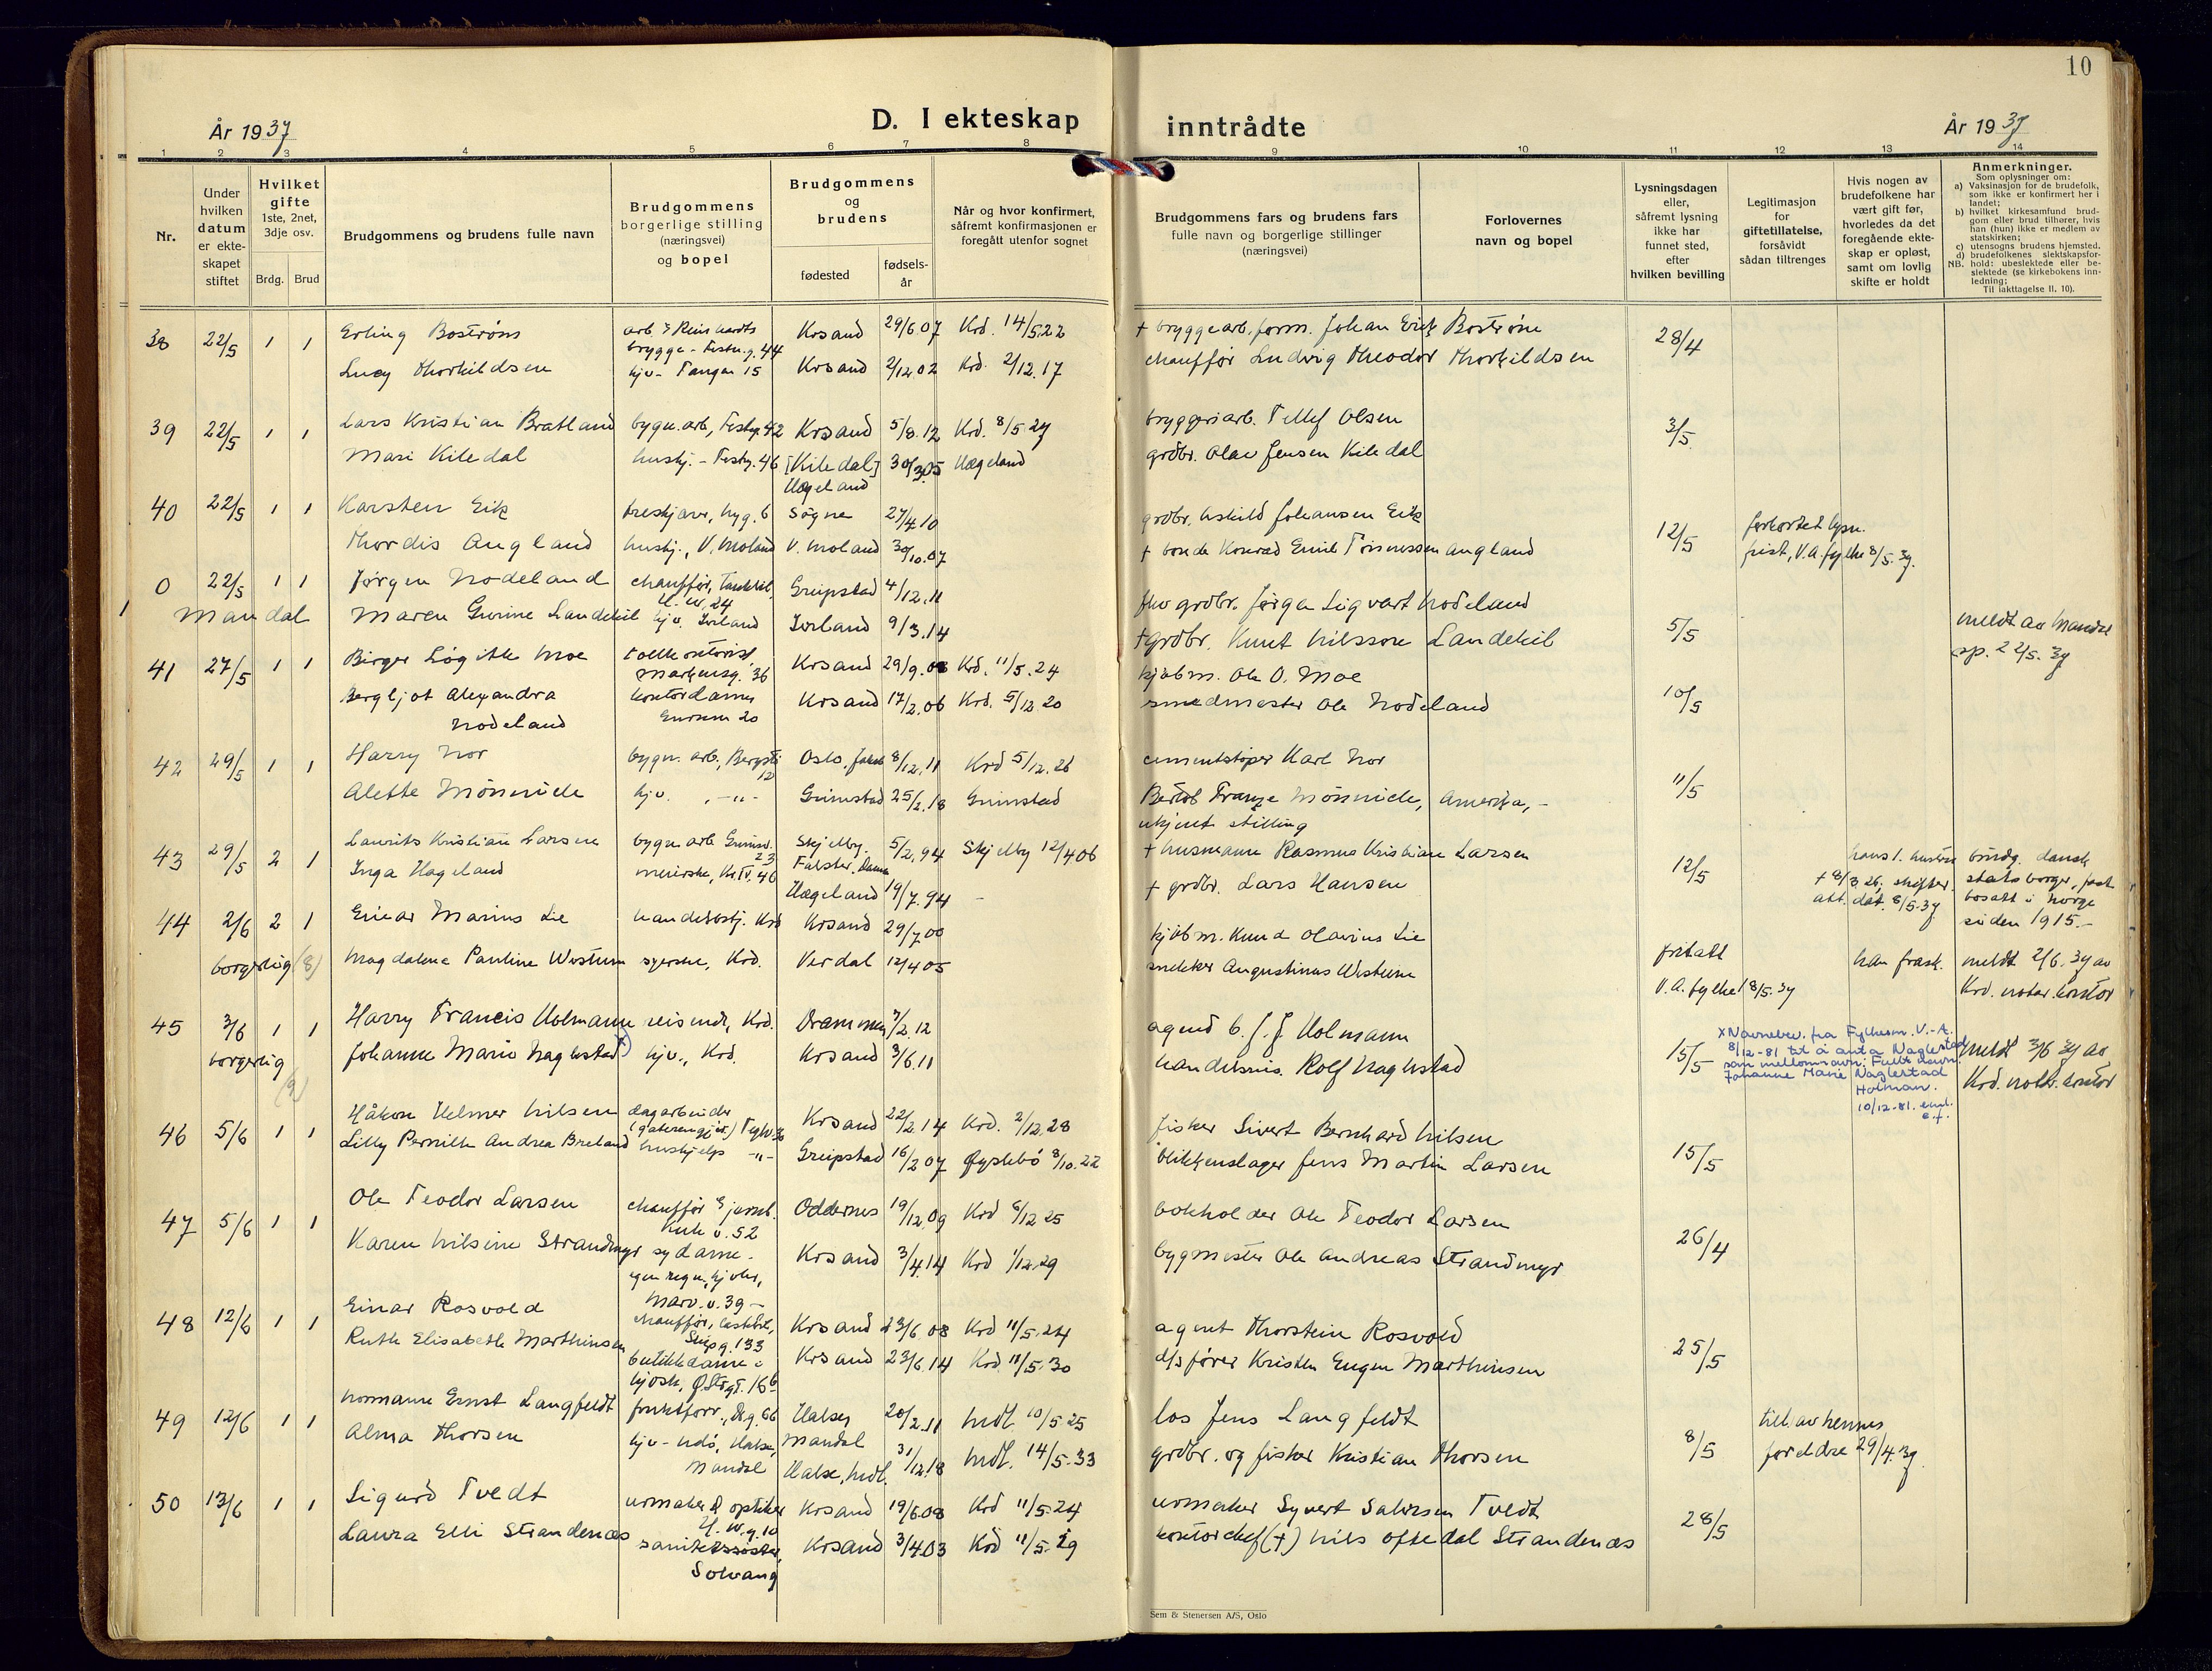 10
År 1937
D. I ekteskap inntrådte
År 1937
1 2 3 4 5 6 7 8 9 10 11 12 13 14
Nr.
Under hvilken datum er ekte-skapet stiftet
Hvilket gifte 1ste, 2net, 3dje osv.
Brdg. Brud
Brudgommens og brudens fulle navn
Brudgommens borgerlige stilling (næringsvei) og bopel
Brudgommens og brudens
fødested
fødsels-år
Når og hvor konfirmert, såfremt konfirmasjonen er foregått utenfor sognet
Brudgommens fars og brudens fars fulle navn og borgerlige stillinger (næringsvei)
Forlovernes navn og bopel
Lysningsdagen eller, såfremt lysning ikke har funnet sted, efter hvilken bevilling
Legitimasjon for giftetillatelse, forsåvidt sådan tiltrenges
Hvis nogen av brudefolkene har vært gift før, hvorledes da det foregående ekte-skap er opløst, samt om lovlig skifte er holdt
Anmerkninger.
Som oplysninger om:
a) Vaksinasjon for de brudefolk, som ikke er konfirmert her i landet;
b) hvilket kirkesamfund brud-gom eller brud tilhører, hvis han (hun) ikke er medlem av statskirken;
c) utensogns brudens hjemsted.
d) brudefolkenes slektskapsfor-
NB. hold: ubeslektede eller be-slektede (se kirkebokens inn-ledning;
Til iakttagelse II. 10).
38 22/5 1 1 Erling Boström Krsand 29/6.07 Krd. 14/5.22 + bryggearb.form. Johan Erik Boström 28/4
Lucy Thorkildsen hjv- Tangen 15 Krsand 2/12.02 Krd. 2/12.17 chauffør Ludvig Theodor Thorkildsen
39 22/5 1 1 Lars Kristian Bratland bygn.arb, Festn.g. 42 Krsand 5/8.12 Krd. 8/5.27 bryggeriarb. Tellef Olsen 3/5
Mari Kiledal hushj. - Festn.g. 46 [Kiledal] 30/3.05 Hægeland grdbr. Olav Jensen Kiledal
Hægeland
40 22/5 1 1 Karsten Eik treskjærer, Søgne 27/4.10 grdbr. Askild Johansen Eik 12/5 forkortet lysn.
Thordis Augland hushj., V. Moland V. Moland 30/10.07 + bonde Konrad Emil Tønnessen Augland frist, V.A. fylke 8/5.37.
0 22/5 1 1 Jørgen Nodeland chauffør, Greipstad 4/12.11 fhv grdbr. Jørgen Sigvart Nodeland 5/5 meldt av Mandal
1 Mandal Maren Gurine Landekil hjv. 9/3.14 + grdbr. Knut Nilssen Landekil sp. 22/5.37
41 27/5 1 1 Birger Moe Markensg. 36 Krsand 29/9.08 Krd. 11/5.24 kjøbm. Ole O. Moe 10/5
Bergljot Alexandra kontordame Krsand 17/2.06 Krd. 5/12.20 smedmester Ole Nodeland
Nodeland
42 29/5 1 1 Harry Nor bygn. arb., Oslo 8/12.11 Krd 5/12.26 cementstøper Karl Nor 11/5
Alette hjv. -"- Grimstad 25/2.18 Grimstad Amerika, -
ukjent stilling
43 29/5 2 1 Laurits Kristian Larsen bygn arb Skjelby. 5/2.94 Skjelby 12/4 06 + husmann Rasmus Kristian Larsen 12/5 hans 1. hustru brudg. dansk
Inga Hægeland Falster. Hægeland 19/7.94 + grdbr. Lars Hansen + 8/3 26; skifte- statsborger, fast
att. dat. 8/5.37 bosatt i Norge
siden 1915.-
44 2/6 2 1 Einar Marius Lie handelsbstj. Krd Krsand 29/7.00 kjøbm. Knud Olavius Lie fortatt han frask. meldt 2/6.37 av
borgerlig (8) Magdalene Pauline Westum syerske, Krd. Verdal 12/4 05 snekker Augustinus Westum V.A. fylke 18/5.37 Krd. notar. kontor
45 3/6 1 1 Harry Francis Holmann reisende, Krd. Drammen 7/2.12 agent C. J. J. Holmann 15/5 meldt 3/6 37 av
borgerlig Johanne Marie Naglestad x) hjv., Krd. Krsand 3/6.11 handelsreis. Rolf Naglestad Krd. notar. kontor
(9)
x Navnebev. fra Fylkesm. V.-A.
8/12-81 til å anta Naglestad
som mellomnavn: Fullt navn
Johanne Marie Naglestad
Holman.
10/12-81.
46 5/6 1 1 Håkon Helmer Nilsen dagarbeider Krsand 22/2.14 Krd. 2/12.28 fisker Sivert Bernhard Nilsen 15/5
Lilly Pernille Andrea Breland hushjelp -"- Greipstad 16/2 07 Øyslebø 8/10.22 blikkenslager Jens Martin Larsen
47 5/6 1 1 Ole Teodor Larsen chauffør Oddernes 19/12.09 Krd 6/12 25 bokholder Ole Teodor Larsen 26/4
Karen Nilsine Strandmyr sydame - Krsand 3/4.14 Krd 1/12.29 bygmester Ole Andreas Strandmyr
48 12/6 1 1 Einar Rosvold chauffør, lastebil, Krsand 23/6 08 Krd 11/5.24 agent Thorstein Rosvold 25/5
Ruth Elisabeth Marthinsen butikkdame - Krsand 23/6 14 Krd 11/5.30 d/s fører Kristen Eugen Marthinsen
49 12/6 1 1 Normann Ernst Langfeldt Halse, 20/2.11 Mdl. 10/5 25 los Jens Langfeldt 8/5 till. av hennes
Alma Thorsen Mandal 31/12.18 Mdl. 14/5.33 grdbr. og fisker Kristian Thorsen foreldre 29/4.37.
Halse, Mdl.
50 13/6 1 1 Sigurd Tvedt urmaker & optiker Krsand 19/6.08 Krd 11/5.24 urmaker Syvert Salvesen Tvedt 28/5
Laura Elli Strandenæs sanitetssøster, Krsand 3/4.03 Krd 11/5.19 kontorchef (+) Nils Oftedal Strandenæs
Solvang
Sem & Stenersen A/S, Oslo